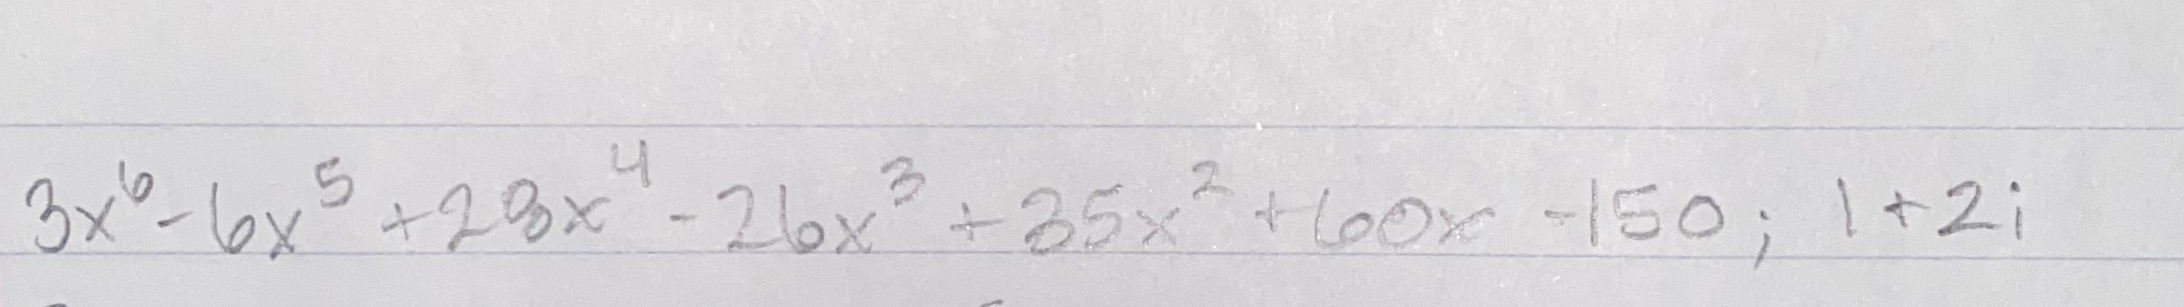 3x⁶ - 6x⁵ + 28x⁴ - 26x³ + 35x² + 60x - 150; 1 + 2i